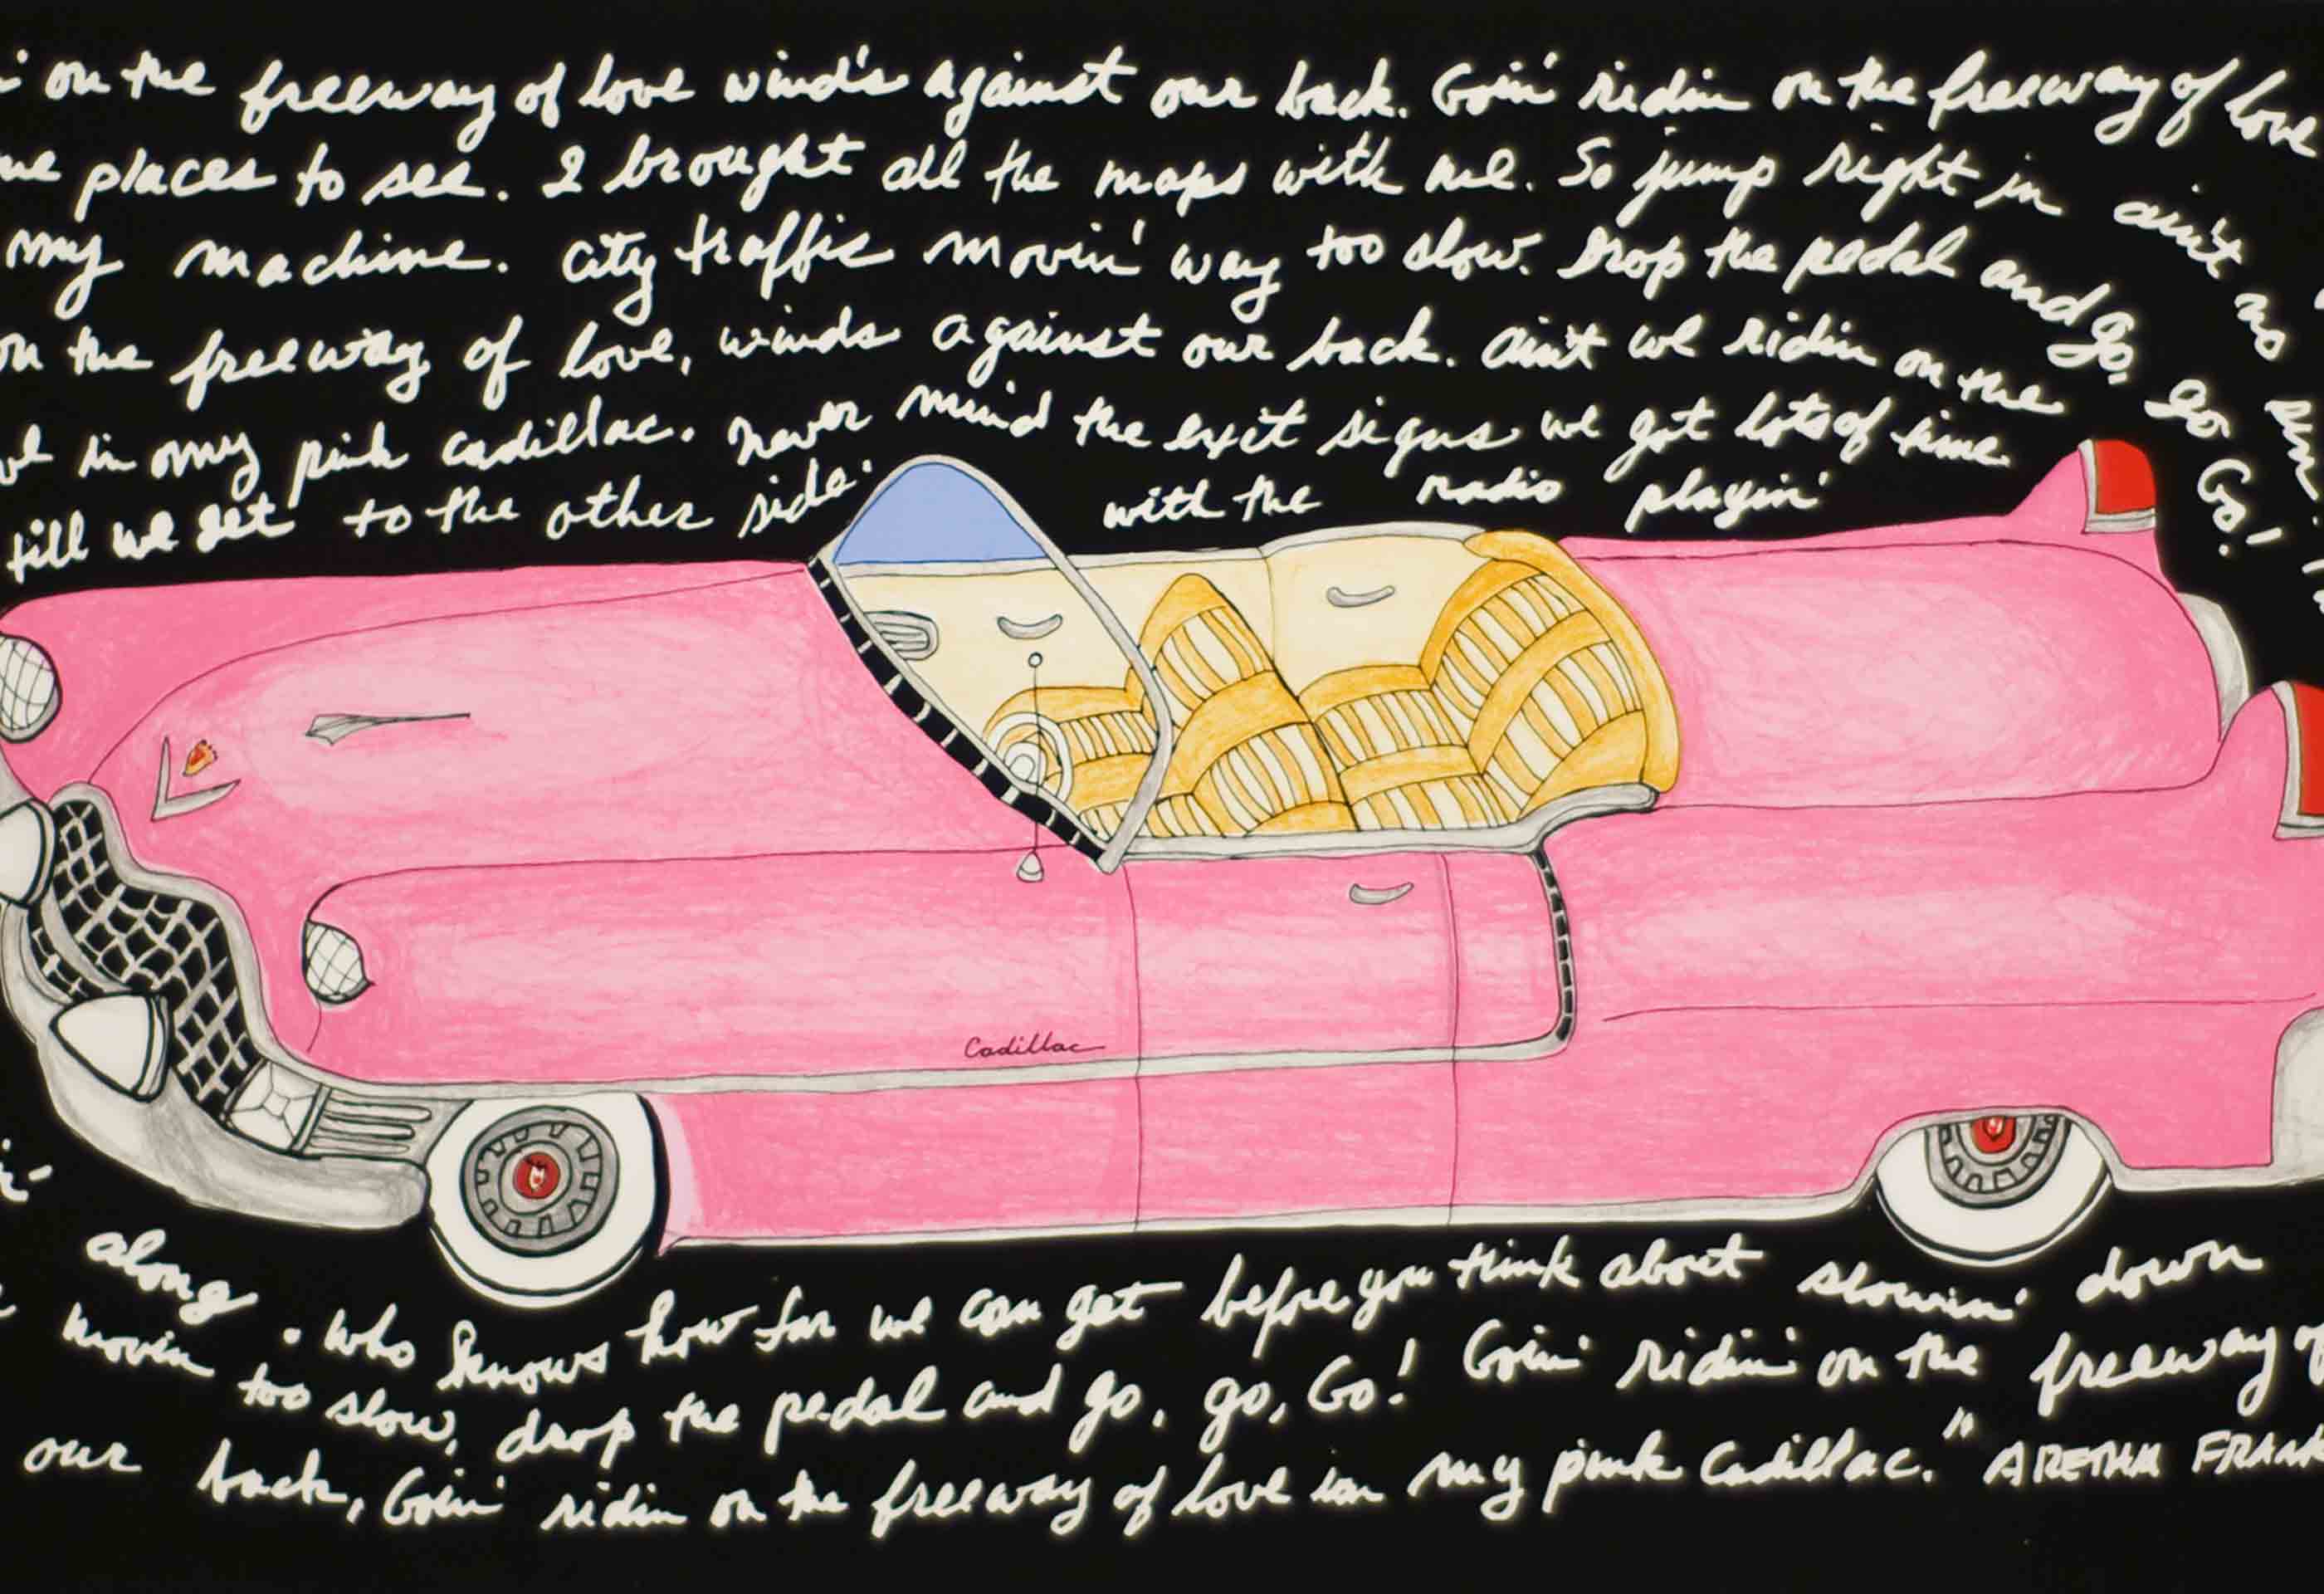 on the freeway of love wind's against our back. Goin' ridin on the freeway of love
places to see. I brought all the maps with me. So jump right in ain't no sin
my machine. City traffic movin' way too slow. Drop the pedal and go, go Go!
on the freeway of love, winds against our back. Ain't we ridin on the
in my pink cadillac. Never mind the exit signs we got lots of time
till we get to the other side. with the radio playin'
Cadillac
along. Who knows how far we can get before you think about slowin' down
movin too slow, drop the pedal and go, go, Go! Goin' ridin' on the freeway of
our back, Goin' ridin on the freeway of love in my pink Cadillac." ARETHA FRANK